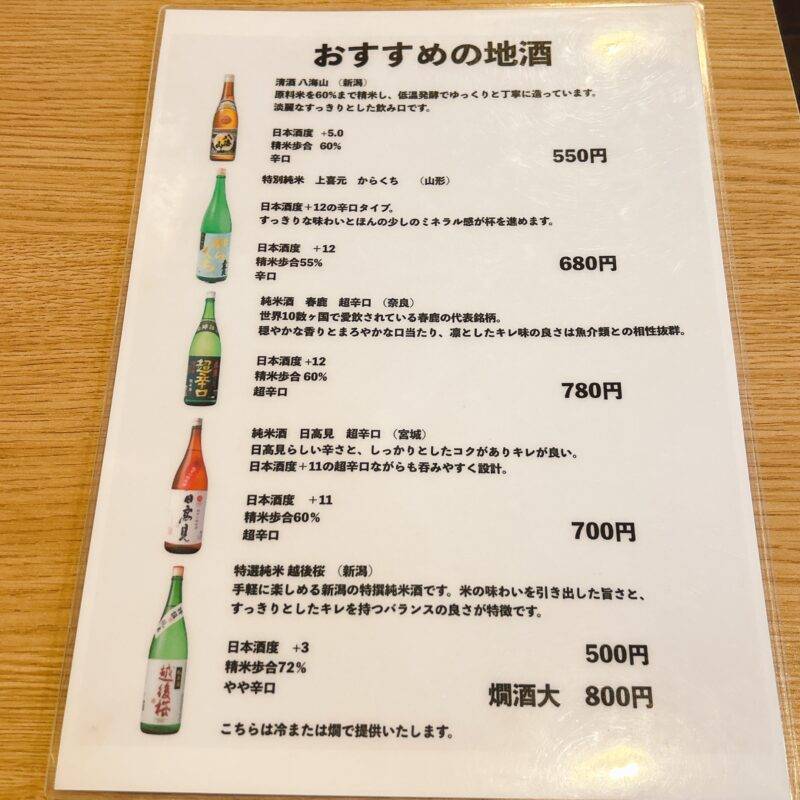 おすすめの地酒
清酒 八海山 （新潟）
原料米を60%まで精米し、低温発酵でゆっくりと丁寧に造っています。
淡麗なすっきりとした飲み口です。
日本酒度 +5.0
精米歩合 60%
辛口
550円
特別純米 上喜元 からくち （山形）
日本酒度＋12の辛口タイプ。
すっきりな味わいとほんの少しのミネラル感が杯を進めます。
日本酒度 ＋12
精米歩合55%
辛口
680円
純米酒 春鹿 超辛口 （奈良）
世界10数ヶ国で愛飲されている春鹿の代表銘柄。
穏やかな香りとまろやかな口当たり、凛としたキレ味の良さは魚介類との相性抜群。
日本酒度 +12
精米歩合 60%
超辛口
780円
超辛口
純米酒 日高見 超辛口 （宮城）
日高見らしい辛さと、しっかりとしたコクがありキレが良い。
日本酒度＋11の超辛口ながらも呑みやすく設計。
日本酒度 ＋11
精米歩合60%
超辛口
700円
日高見
特選純米 越後桜 （新潟）
手軽に楽しめる新潟の特撰純米酒です。米の味わいを引き出した旨さと、
すっきりとしたキレを持つバランスの良さが特徴です。
日本酒度 +3
精米歩合72%
やや辛口
500円
燗酒大 800円
越後桜
こちらは冷または燗で提供いたします。